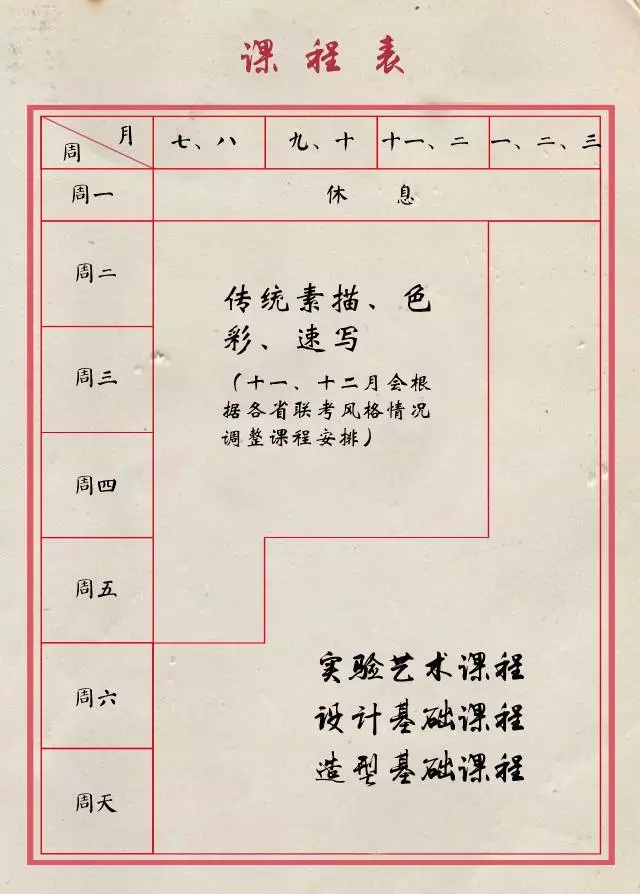 课程表
月
周
七、八
九、十
十一、二
一、二、三
周一
休息
周二
传统素描、色
彩、速写
周三
(十一、十二月会根
据各省联考风格情况
调整课程安排)
周四
周五
实验艺术课程
周六
设计基础课程
造型基础课程
周天